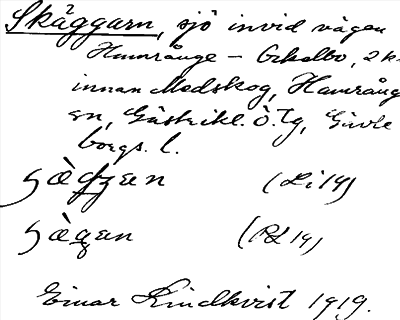 Skäggarn, sjö invid vägen
Hamrånge – Ockelbo, 2 k
innan Medskog, Hamrång
en, Gästrikl. Ö. Tg, Gävle
borgs. l.
(Li 14)
(RL 14)
Einar Lindkvist 1919.